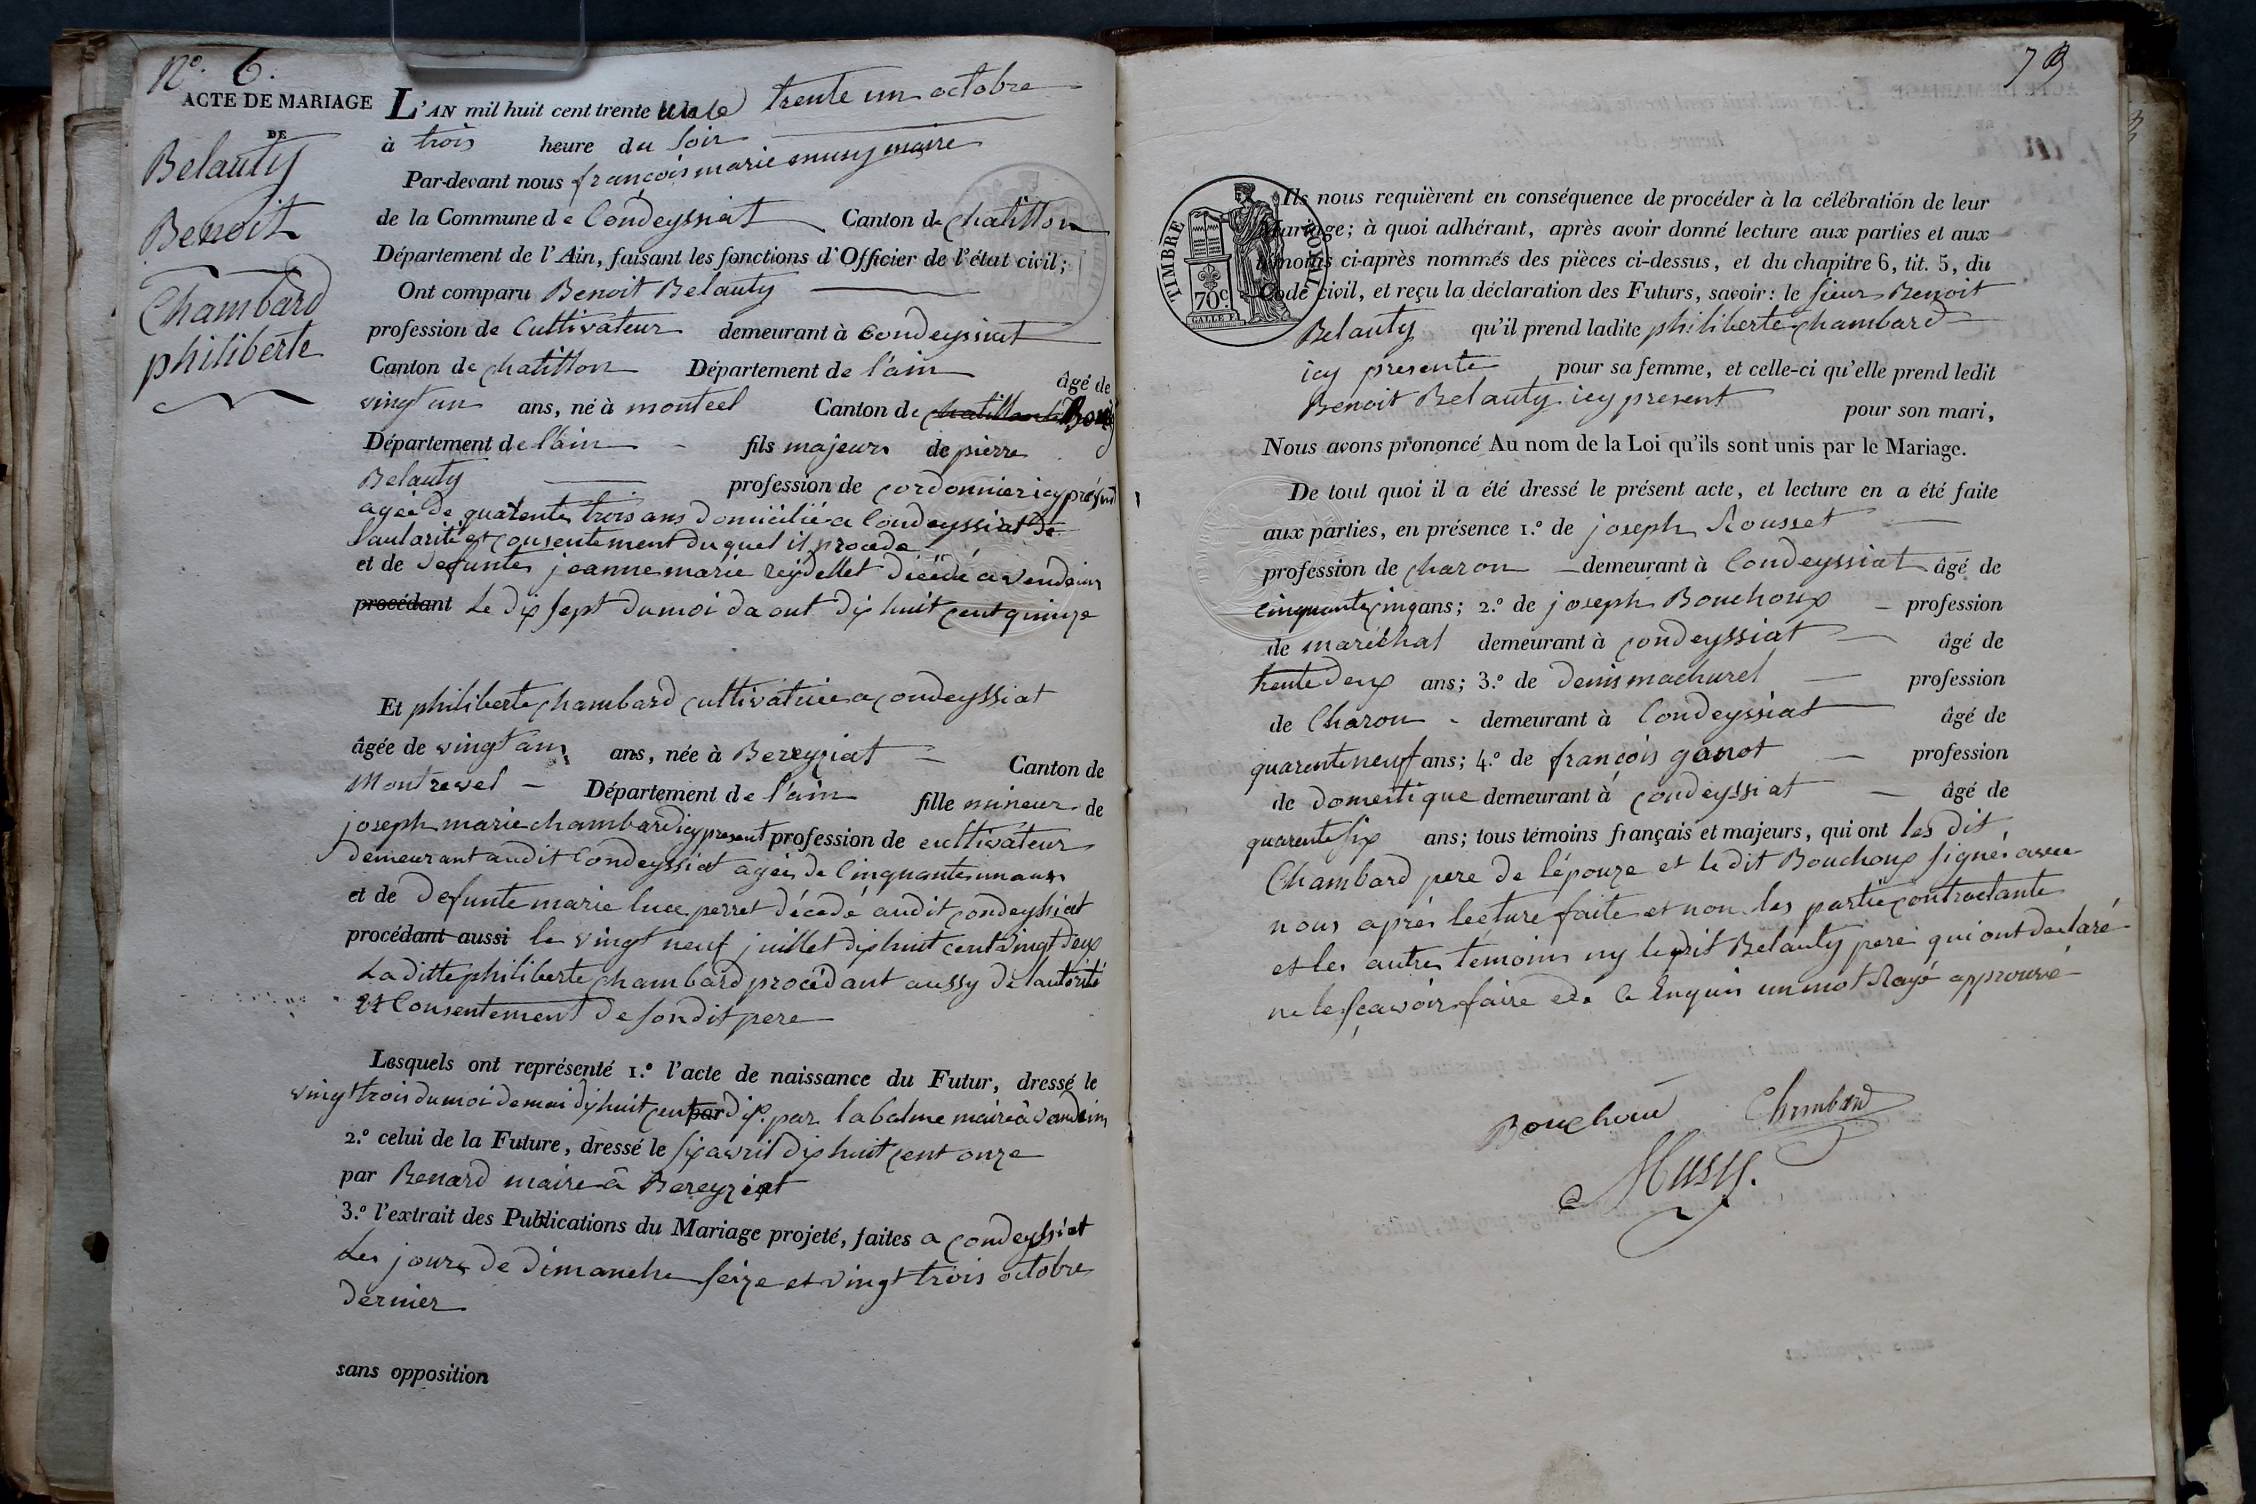 N.o 6.
ACTE DE MARIAGE
DE
Belauty
Benoit
Chambard
philiberte
L'AN mil huit cent trente un le trente un octobre
à trois heure du soir
Par-devant nous françois marie musy maire
de la Commune de Condeyssiat Canton de chatillon
Département de l'Ain, faisant les fonctions d'Officier de l'état civil;
Ont comparu Benoit Belauty
profession de Cultivateur demeurant à Condeyssiat
Canton de chatillon Département de l'ain âgé de
vingt un ans, né à monteel Canton de chatillon le Bourg
Département de l'ain fils majeur de pierre
Belauty profession de cordonnier icy présent
agée de quatente trois ans domicilié a Condeyssiat De
lautarité et consentement duquel il procede
et de defunte jeanne marie reydellet décédé a vendeins
procédant Le dix sept du moi daout dix huit cent quinze
Et philiberte chambard cultivatrice a condeyssiat
âgée de vingt ans ans, née à Bereyziat Canton de
Montrevel Département de l'ain fille mineur de
joseph marie chambard icy present profession de cultivateur
demeurant audit Condeyssiat agée de Cinquante un ans
et de Defunte marie luce perret décédé audit condeyssiat
procédant aussi le vingt neuf juillet dix huit cent vingt deux
La ditte philiberte chambard procédant aussy de lautorité
et Consentement De son dit pere
Lesquels ont représenté 1.o l'acte de naissance du Futur, dressé le
vingt trois du moi de mai dix huit cent par dix par labalme maire à vandeins
2.o celui de la Future, dressé le six avril dix huit cent onze
par Benard maire à Bereyziat
3.o l'extrait des Publications du Mariage projeté, faites a condeyssiat
Les jours de dimanche seize et vingt trois octobre
dernier
sans opposition
73
TIMBRE ROYAL
70c.
Ils nous requièrent en conséquence de procéder à la célébration de leur
Mariage; à quoi adhérant, après avoir donné lecture aux parties et aux
témoins ci-après nommés des pièces ci-dessus, et du chapitre 6, tit. 5, du
Code civil, et reçu la déclaration des Futurs, savoir: le sieur Benoit
Belauty qu'il prend ladite philiberte chambard
icy presente pour sa femme, et celle-ci qu'elle prend ledit
Benoit Belauty icy present pour son mari,
Nous avons prononcé Au nom de la Loi qu'ils sont unis par le Mariage.
De tout quoi il a été dressé le présent acte, et lecture en a été faite
aux parties, en présence 1.o de joseph Rousset
profession de charon demeurant à Condeyssiat âgé de
cinquante cinq ans; 2.o de joseph Bouchoux profession
de maréchal demeurant à condeyssiat âgé de
trente deux ans; 3.o de denis machurel profession
de Charon demeurant à Condeyssiat âgé de
quarente neuf ans; 4.o de françois garrot profession
de domestique demeurant à condeyssiat âgé de
quarente six ans; tous témoins français et majeurs, qui ont les dit
Chambard pere de lépouze et le dit Bouchoux signés avec
nous aprés lecture faite et non les partie contractante
et les autres temoins ny ledit Belauty pere qui ont declaré
ne le sçavoir faire de ce Enquis un mot Rayé approuvé
Bouchoux Chambard
Musy.